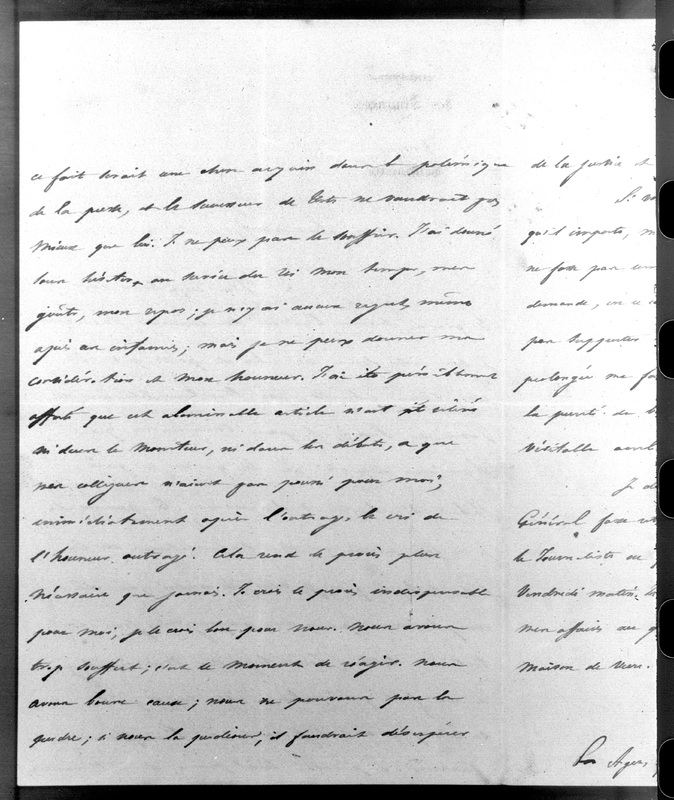 ce fait serait une chose acquise dans la polémique
de la presse, et le successeur de ne vaudrait pas
mieux que lui. Je ne puis pas le souffrir. J'ai donné
sans hésiter au service du roi mon temps, mes
goûts, mon repos; je n'y ai aucun regret, même
après ces infamies; mais je ne peux donner ma
considération et mon honneur. J'ai été péniblement
affecté que cet abominable article n'ait été relevé
ni dans le Moniteur, ni dans les débats, et que
mes collègues n'aient pas poussé pour moi,
immédiatement après l'outrage, le cri de
l'honneur outragé. Cela rend le procès plus
nécessaire que jamais. Je crois le procès indispensable
pour moi, je le crois bon pour nous. Nous avons
trop souffert; c'est le moment de réagir. Nous
avons bonne cause; nous ne pouvons pas la
perdre; si nous la perdions, il faudrait désespérer
de la justice et
Si
qu'il importe,
ne fasse pas
demande, on
pas supporter
prolongée me
la pureté de
véritable
Je
Général fasse
le Journaliste
Vendredi matin.
mes affaires au
maison de
Agen,